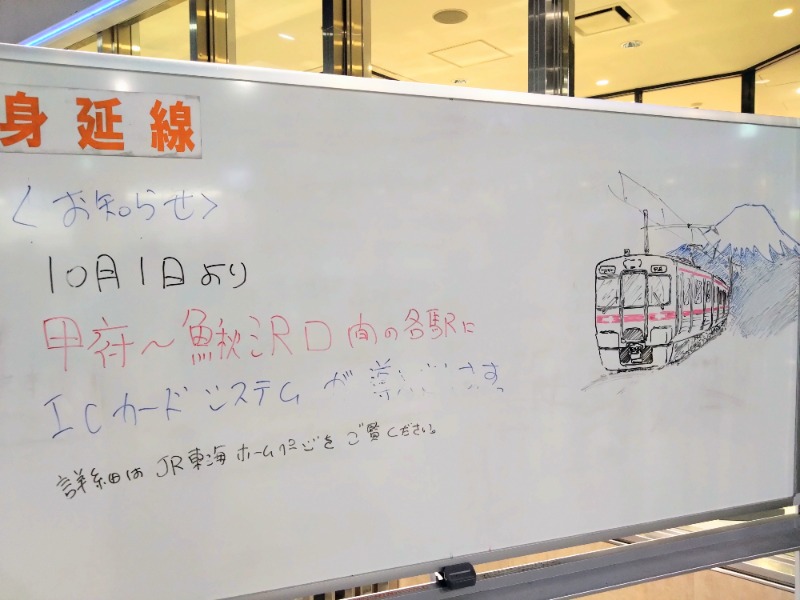 身延線
＜お知らせ＞
10月1日より
甲府～鰍沢口間の各駅に
ICカードシステムが導 ます。
詳細はJR東海ホームページをご覧ください。